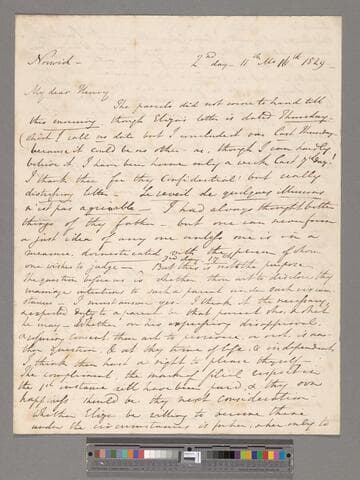 Norwich - 2nd day - 11th Mo 16th 1829 -
My dear Henry
The parcels did not come to hand till
this evening though Eliza's letter is dated Thursday -
that I call no date but I concluded was last Thursday
because it could be no other - as, though I can hardly
believe it I have been home only a week last 7th day!
I thank thee for thy confidential but really
distressing letter - Le reveil de quelques illusions
n'est pas agreable - I had always thought better
things of thy father - but one can never form
a just idea of any one unless one is in a
measure domesticated with the person of whom
one wishes to judge - 3rd day 17th
But this is not the purpose
the question before me is whether thou art to disclose thy
marriage intentions to such a parent under such circum
stances - I must answer yes I think it the necessary
& expected duty to a parent be that parent who & what
he may - Whether on his expressing disapproval
& refusing consent thou art to persevere or not is ano
ther question & at thy time of life & independent
I think thou hast a right to please thyself -
The compliment & the mark of filial respect in
the 1st instance will have been paid, & thy own
happiness should be thy next consideration
Whether Eliza be willing to become thine
under the circumstances is for her & her only to